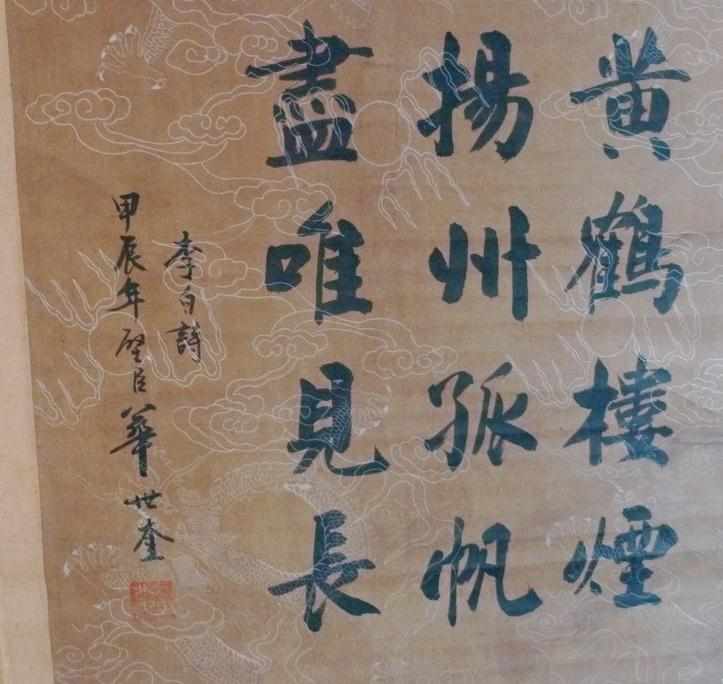 黄鶴樓煙
揚州孤帆
盡唯見長
李白詩
甲辰年 壁臣 華世奎